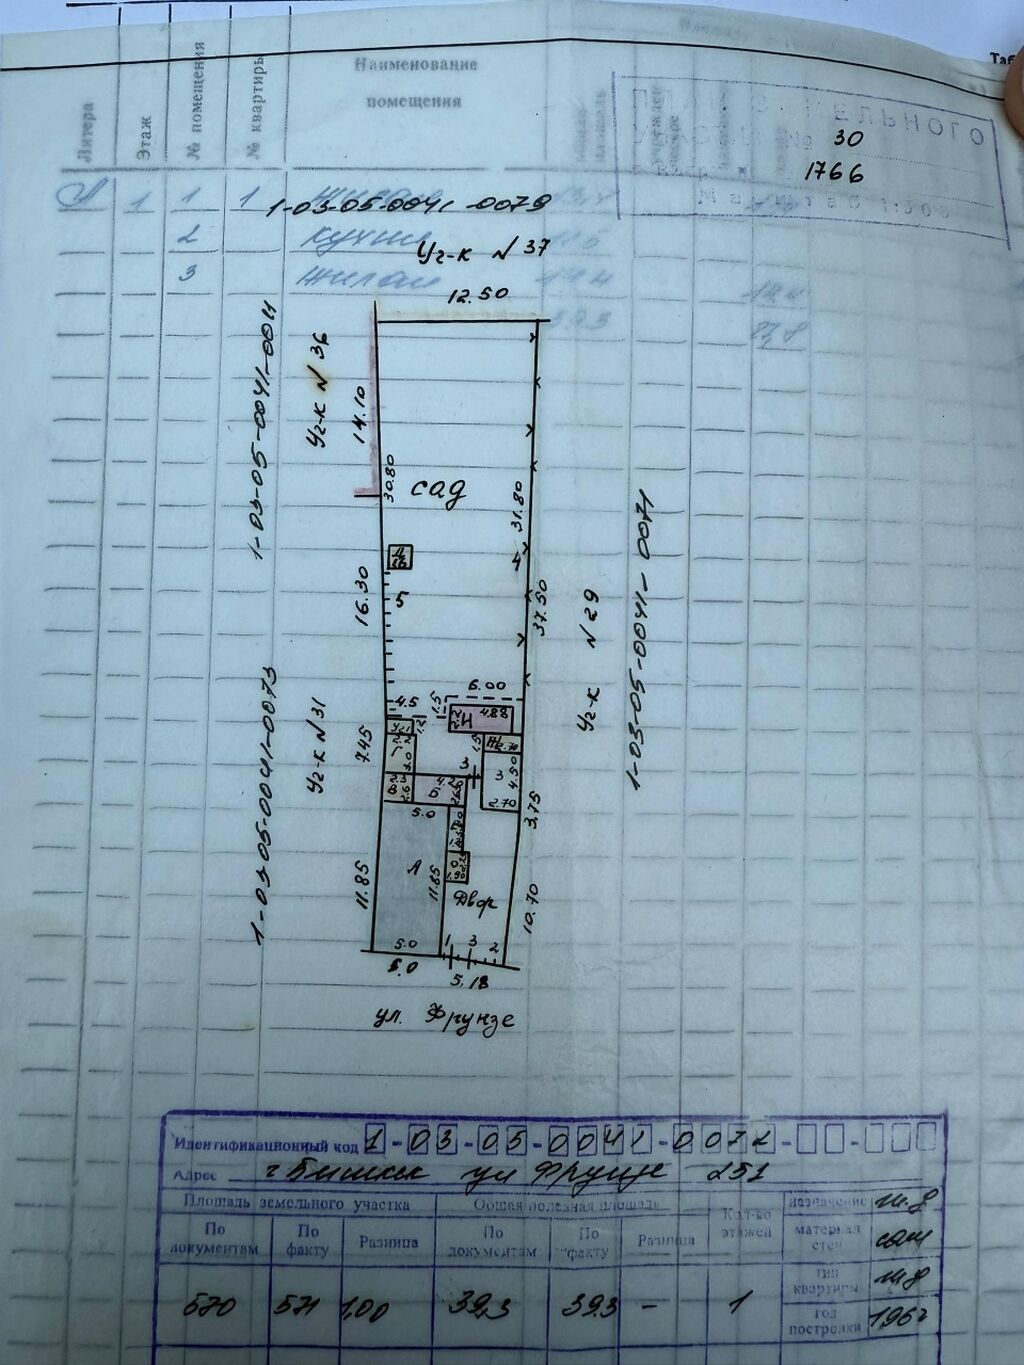 Таб
Литера
Этаж
№ помещения
№ квартиры
Наименование
помещения
ПЛАН ЗЕМЕЛЬНОГО
№ 30
1766
Масштаб 1:500
А 1 1 1
1-03-05-0041-0079
2 кухня
Уч-к N 37
3 жилая
12.50
39.3
1-03-05-0041-0011
Уч-к N 36
14.10
30.80
сад
31.80
Д
4
5
16.30
37.50
Уч-к N 29
1-03-05-0041-0071
6.00
4.5
1.5
4.88
Н
1.5
2.70
7.45
Г
3.0
3
3
4.50
2.70
В
4.2
Б
5.0
3.75
1-03-05-0041-0073
Уч-к N 31
11.85
А
11.85
Двор
10.70
5.0
1 3 2
5.0
5.18
ул. Фрунзе
Идентификационный код 1-03-05-0041-0072-
Адрес г Бишкек ул Фрунзе 251
Площадь земельного участка
Общая полезная площадь
Кол-во этажей
назначение ж.д
По документам
По факту
Разница
По документам
По факту
Разница
материал стен сам
тип квартиры ж.д
570 571 1,00 39,3 39.3 – 1
год постройки